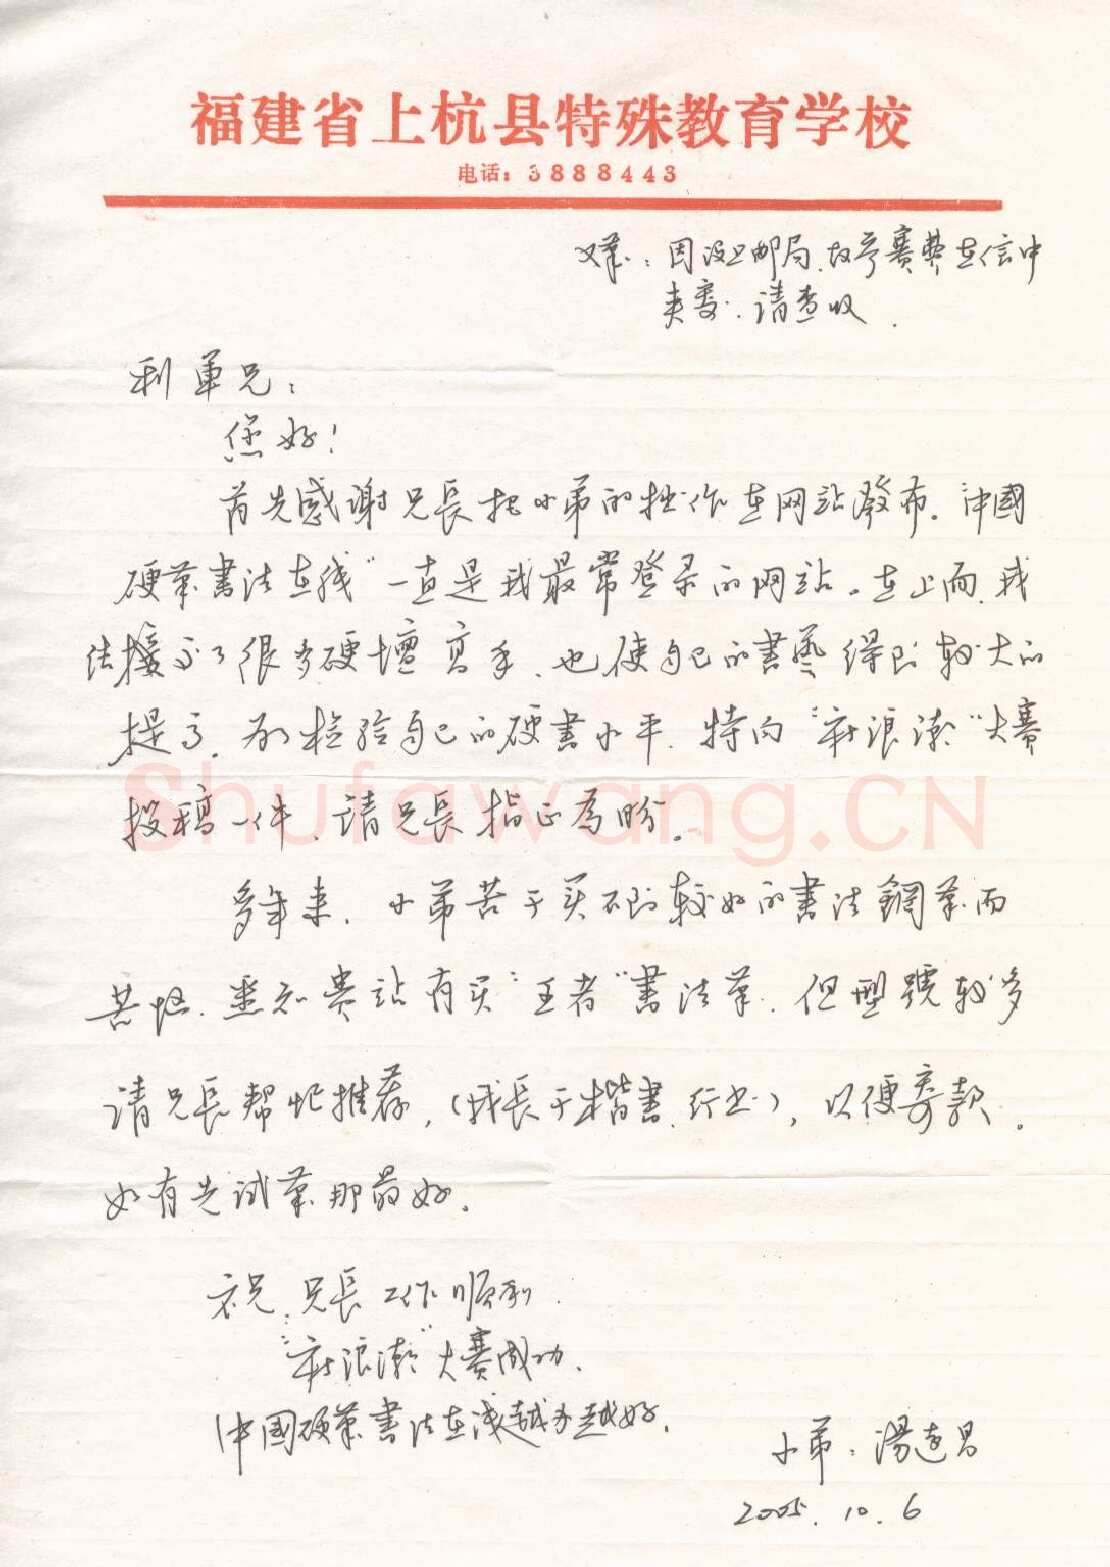 福建省上杭县特殊教育学校
电话：3888443
又筆：因没上邮局，故参赛费在信中
夹寄，请查收．
利軍兄：
您好！
首先感谢兄長把小弟的拙作在网站發布。“中國
硬筆書法在线”一直是我最常登录的网站。在上面，我
结接了很多硬壇高手，也使自己的書藝得到较大的
提高．为检验自己的硬書水平．特向“新浪潮”大賽
投稿一件，请兄長指正為盼。
多年来，小弟苦于买不到较好的書法鋼筆而
苦恼．悉知貴站有买“王者”書法筆，但型號较多
请兄長帮忙推荐，（我長于楷書、行书），以便寄款。
如有先试筆那最好。
祝：兄長工作顺利．
“新浪潮”大賽成功．
中國硬筆書法在线越办越好．
小弟：湯連昌
2005．10．6
Shufawang.CN